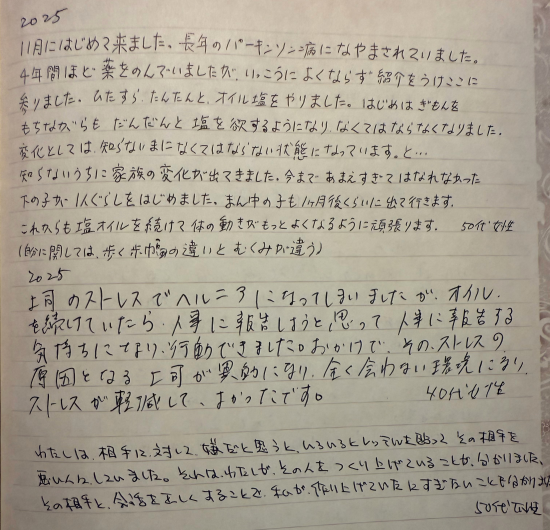 2025
11月にはじめて来ました。長年のパーキンソン病になやまされていました。
4年間ほど薬をのんでいましたが、いっこうによくならず紹介をうけここに
参りました。ひたすら、たんたんと、オイル塩をやりました。はじめはぎもんを
もちながらも だんだんと 塩を欲するようになり、なくてはならなくなりました。
変化としては、知らないまになくてはならない状態になっています。と…
知らないうちに家族の変化が出てきました。今まであまえすぎてはなれなかった
下の子が1人ぐらしをはじめました。まん中の子も1ヶ月後くらいに出て行きます。
これからも塩オイルを続けて体の動きがもっとよくなるように頑張ります。 50代女性
(的に関しては、歩く歩幅の違いと むくみが違う)
2025
上司のストレスでヘルニアになってしまいましたが、オイル
を続けていたら、人事に報告しようと思って 人事に報告する
気持ちになり、行動できました。おかげで、その、ストレスの
原因となる 上司が異動になり、全く会わない環境になり、
ストレスが軽減して、よかったです。 40代女性
わたしは、相手に対して、嫌だと思うと、いろいろとレッテルを貼って その相手を
悪い人にしていました。それは、わたしが、その人を つくり上げていることが、分かりました。
その相手と、会話を正しくすることで、私が、作り上げていたにすぎないことも分かりま
50代女性